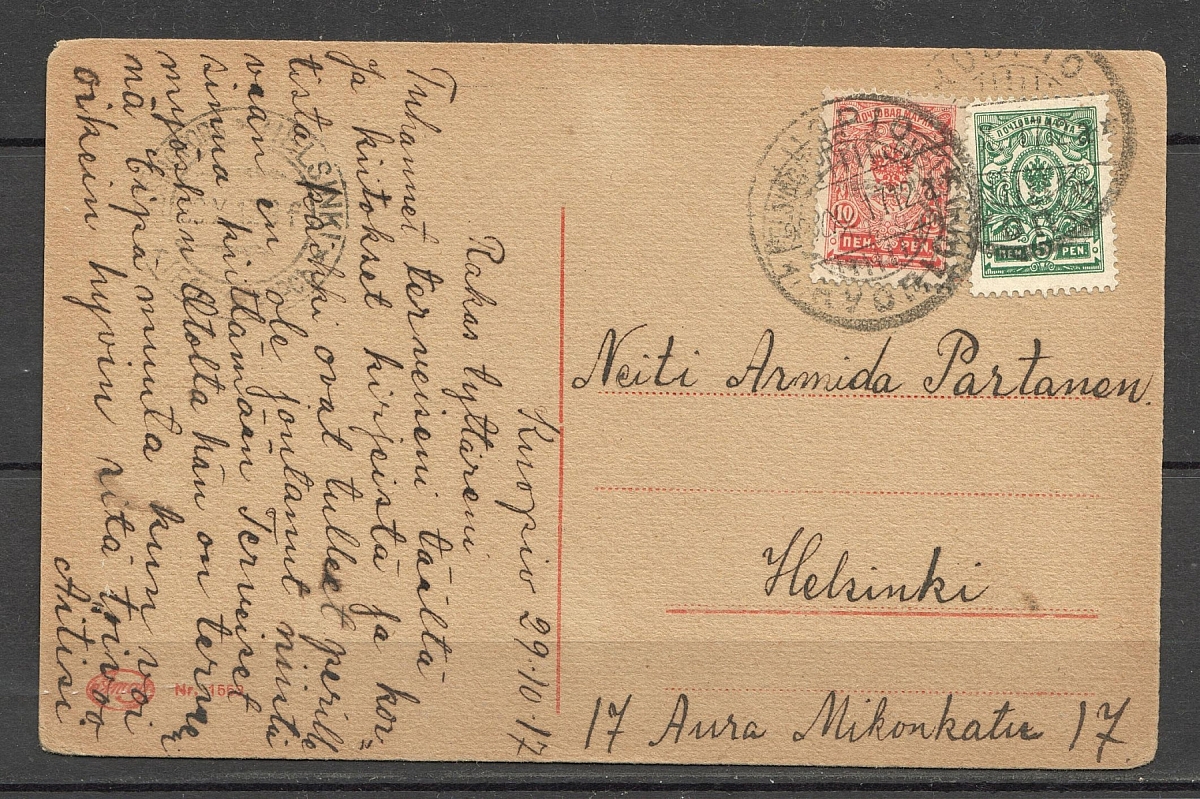 Kuopio 29.10.17
Rakas tyttäreni
Tuhannet terveiseni täältä
Ja kiitokset kirjeistä ja kor=
tista kaikki ovat tulleet perille
vaan en ole joutanut niistä
sinua kiittämään Terveiset
myöskin Atolta hän on terve
nä Eipä muuta kun voi
oikein hyvin sitä toivoo
Äitisi
Neiti Armida Partanen.
Helsinki
17 Aura Mikonkatu 17.
ПОЧТОВАЯ МАРКА
10 10
ПЕН. PEN.
ПОЧТОВАЯ МАРКА
5
ПЕН. PEN.
KUOPIO
Nr. 1562